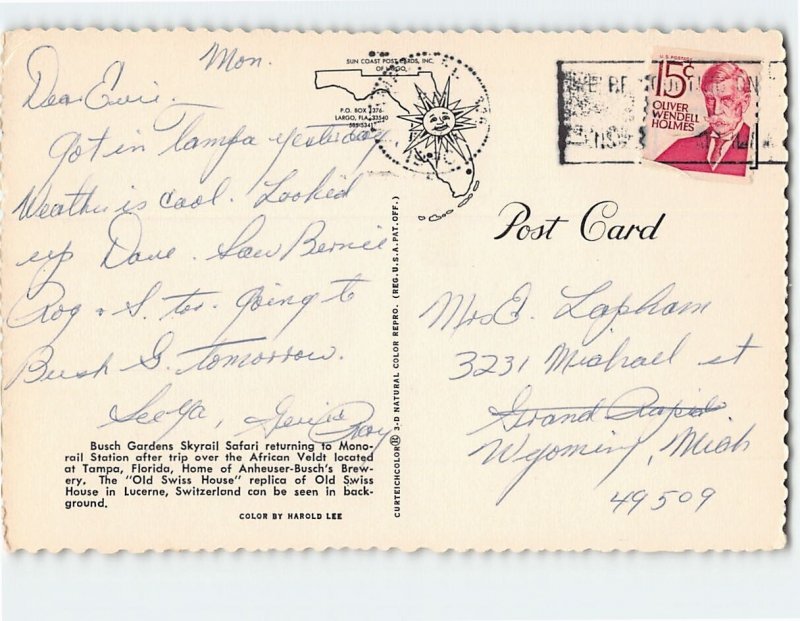 Mon.
Dear Evie,
Got in Tampa yesterday
Weather is cool. Looked
up Dave. Saw Bernie
Rog & S. too. going to
Bush G. tomorrow.
See Ya,
Busch Gardens Skyrail Safari returning to Mono-
rail Station after trip over the African Veldt located
at Tampa, Florida, Home of Anheuser-Busch's Brew-
ery. The "Old Swiss House" replica of Old Swiss
House in Lucerne, Switzerland can be seen in back-
ground.
COLOR BY HAROLD LEE
SUN COAST POST CARDS, INC.
OF LARGO,
P.O. BOX 376
LARGO, FLA. 33540
CURTEICHCOLOR® 3-D NATURAL COLOR REPRO. (REG. U.S.A. PAT. OFF.)
U.S. POSTAGE
15¢
OLIVER
WENDELL
HOLMES
Post Card
Mrs E. Lapham
3231 Michael st
Grand Rapids
Wyoming, Mich
49509